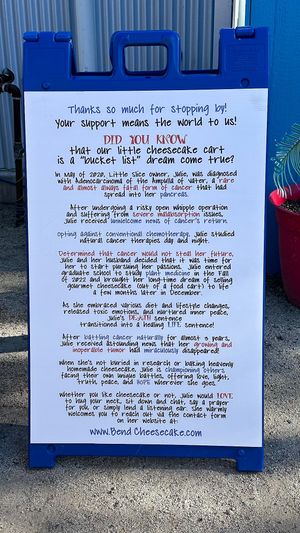 Thanks so much for stopping by!
Your support means the world to us!
DID YOU KNOW
that our little cheesecake cart
is a "bucket list" dream come true?
In July of 2020, Little Slice owner, Julie, was diagnosed
with Adenocarcinoma of the Ampulla of Vater, a rare
and almost always fatal form of cancer that had
spread into her pancreas.
After undergoing a risky open whipple operation
and suffering from severe malabsorption issues,
Julie received unwelcome news of cancer's return.
Opting against conventional chemotherapy, Julie studied
natural cancer therapies day and night.
Determined that cancer would not steal her future,
Julie and her husband decided that it was time for
her to start pursuing her passions. Julie entered
graduate school to study plant medicine in the Fall
of 2022 and brought her long-time dream of selling
gourmet cheesecake (out of a food cart) to life
a few months later in December.
As she embraced various diet and lifestyle changes,
released toxic emotions, and nurtured inner peace,
Julie's DEATH sentence
transitioned into a healing LIFE sentence!
After battling cancer naturally for almost 3 years,
Julie received astounding news that her growing and
inoperable tumor had miraculously disappeared!
When she's not buried in research or baking heavenly
homemade cheesecake, Julie is championing others
facing their own unique battles, offering love, light,
truth, peace, and HOPE wherever she goes.
Whether you like cheesecake or not, Julie would LOVE
to hug your neck, sit down and chat, say a prayer
for you, or simply lend a listening ear. She warmly
welcomes you to reach out via the contact form
on her website at:
www.BendCheesecake.com